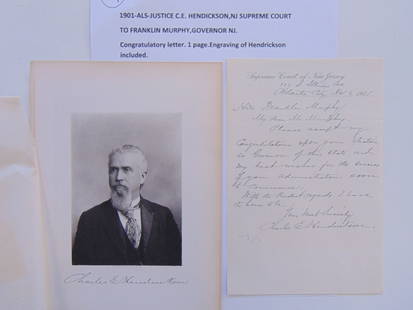 1901-ALS-JUSTICE C.E. HENDICKSON,NJ SUPREME COURT
TO FRANKLIN MURPHY,GOVERNOR NJ.
Congratulatory letter. 1 page.Engraving of Hendrickson
included.
Supreme Court of New Jersey
Atlantic City, Nov 1901
Hon Franklin Murphy
My dear Mr Murphy
Please accept my
Congratulations upon your election
as Governor of this State and
my best wishes for the success
of your administration soon
to commence.
With the kindest regards I have
Yours Most Sincerely
Charles E Hendrickson
Charles E Hendrickson